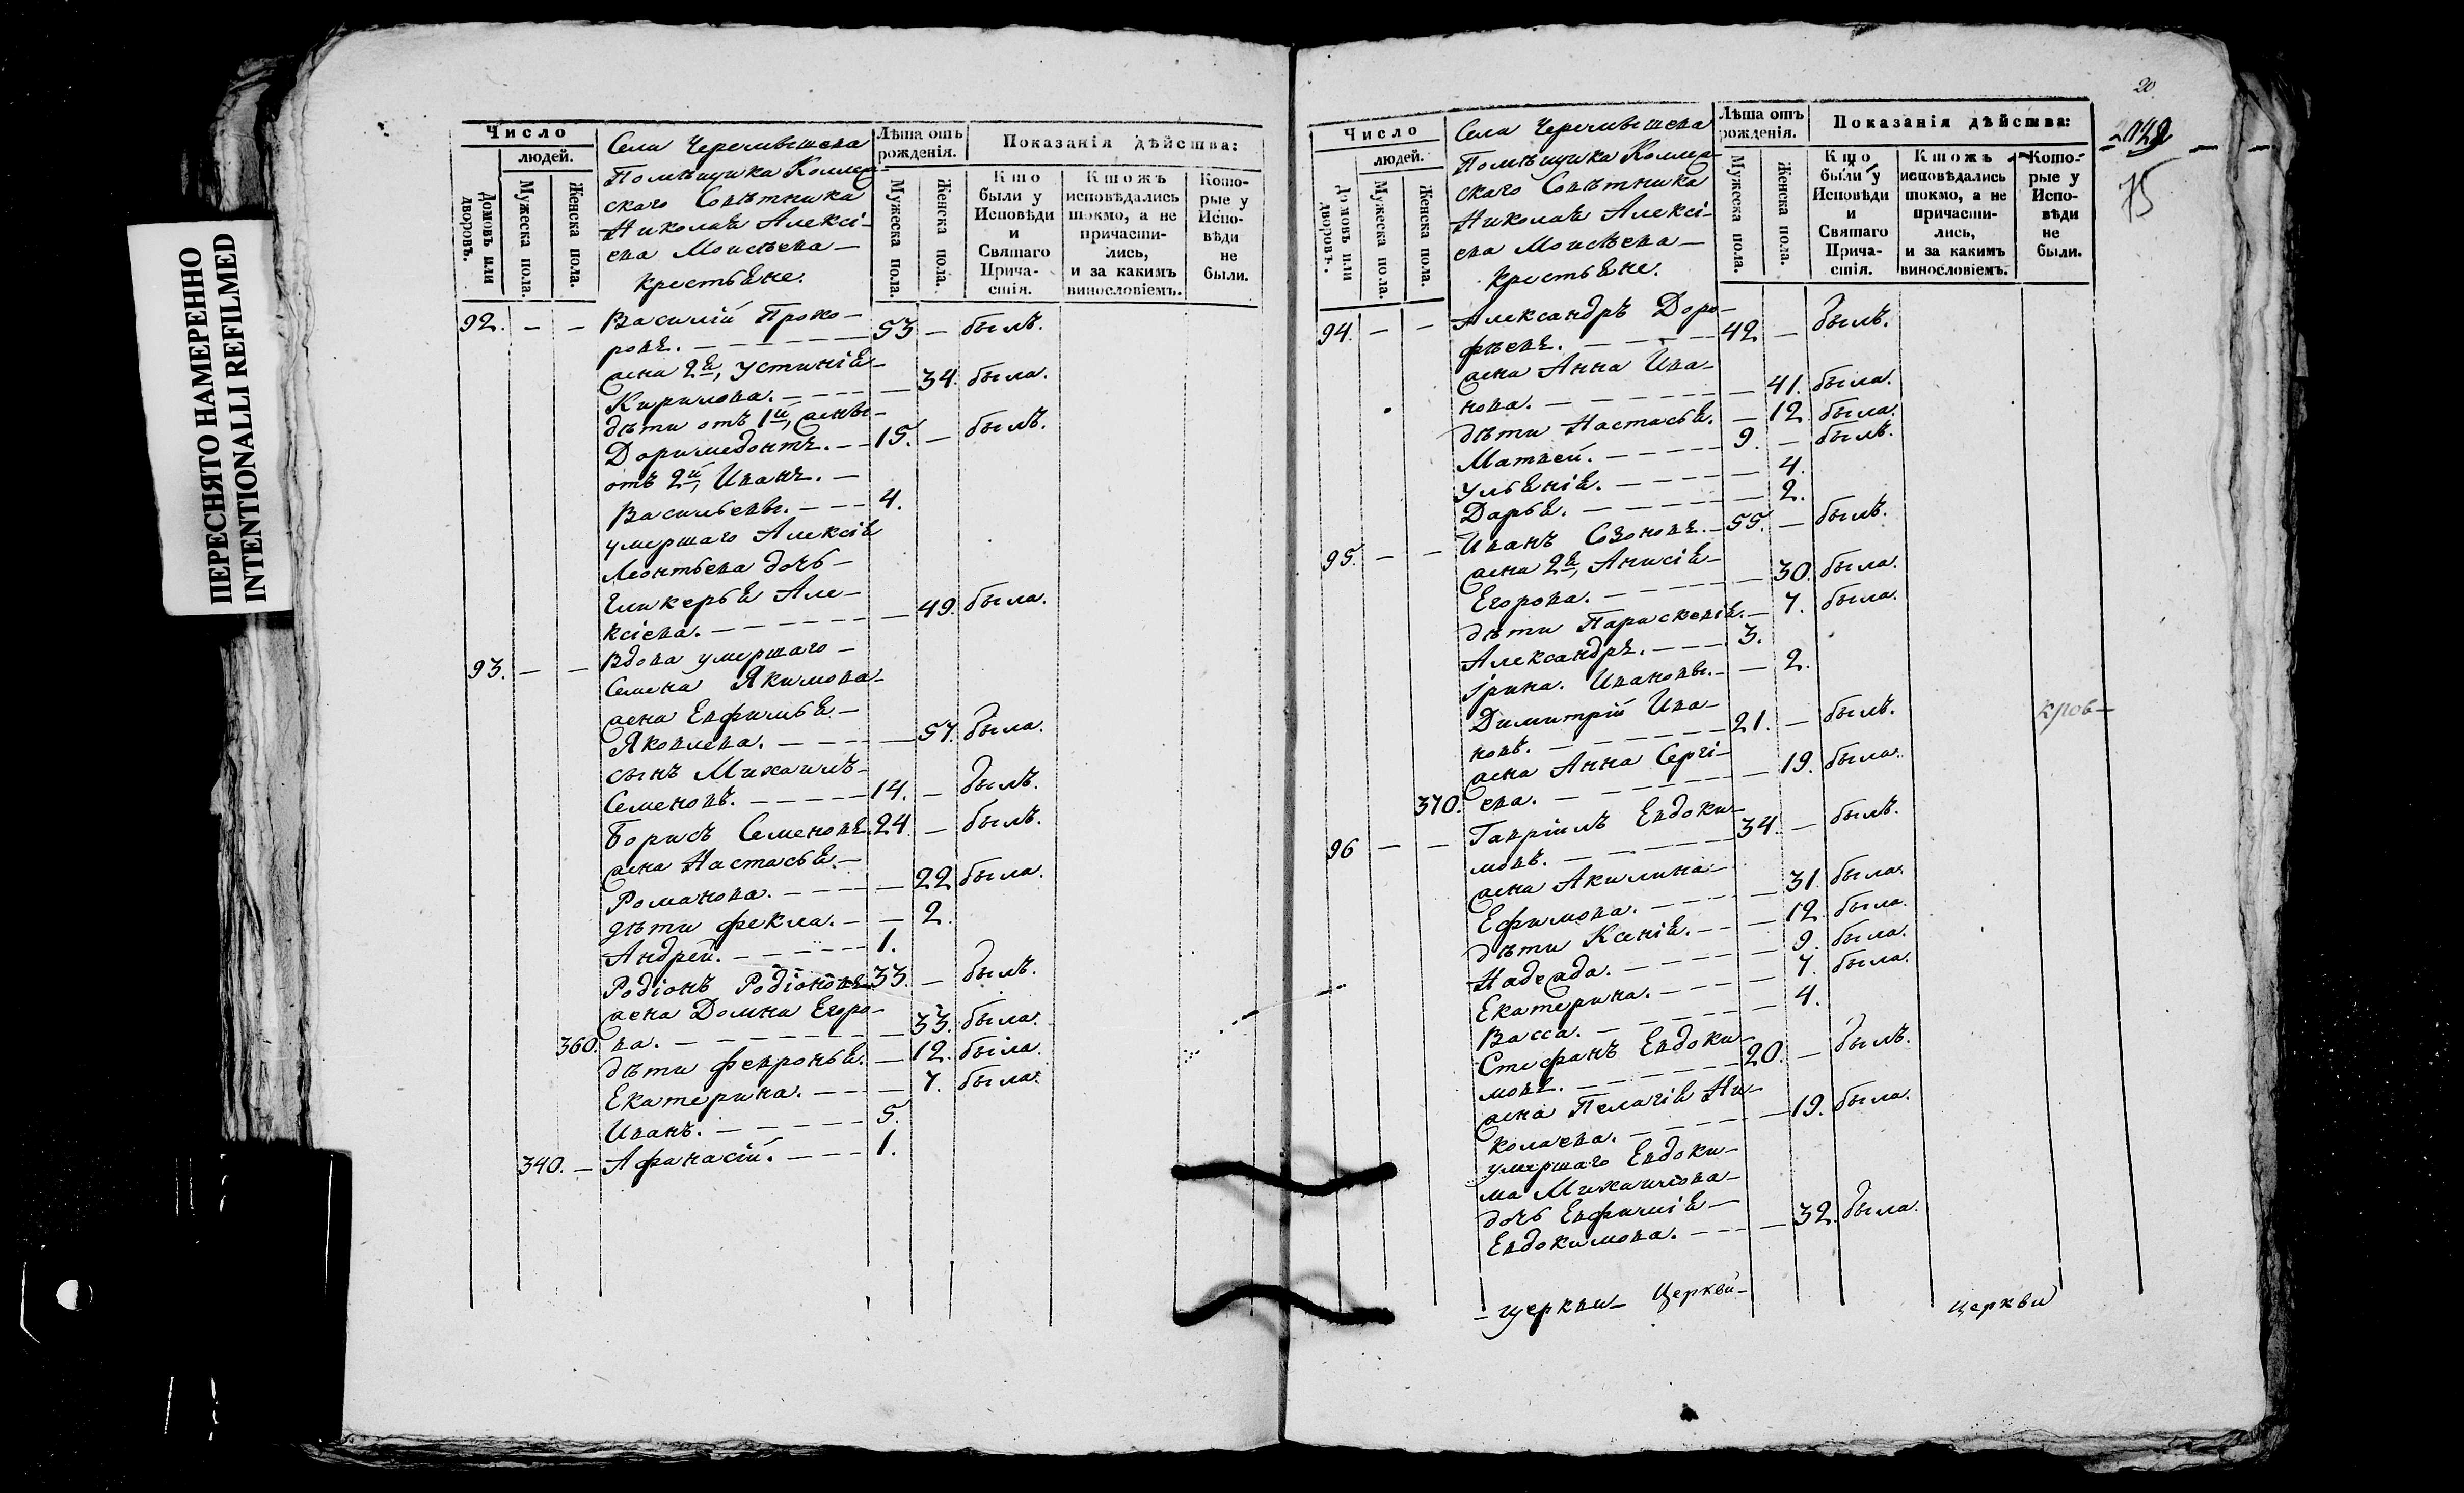 ПЕРЕСНЯТО НАМЕРЕННО
INTENTIONALLI REFILMED
Число
людей.
Домовъ или дворовъ.
Мужеска пола.
Женска пола.
Села
Помѣщика
скаго Совѣтника
Николая Алексі-
ева Моисѣева
крестьяне.
Лѣта отъ рожденія.
Мужеска пола.
Женска пола.
Показанія дѣйства:
Кто были у Исповѣди и Святаго Прича-стія.
Ктожъ исповѣдались токмо, а не причасти-лись, и за какимъ винословіемъ.
Кото-рые у Испо-вѣди не были.
92. – – Василій Прохо-
ровъ. 53 – былъ.
жена 2я, Устинія
Кирилова. – 34. была.
дѣти отъ 1й, жены
Доримедонтъ. 15. – былъ.
отъ 2й, Иванъ.
Васильевы. 4.
умершаго Алексія
Леонтьева дочь
Гликерья Але-
ксіева. – 49. была.
93. – – Вдова умершаго
Семена Якимова
жена Евфимья
Яковлева. – 57. была.
сынъ Михаилъ
Семеновъ. 14. – былъ.
Борисъ Семеновъ. 24. – былъ.
жена Настасья
Романова. – 22 была.
дѣти Фекла. – 2.
Андрей. 1.
Родіонъ Родіоновъ 33. – былъ.
жена Домна Егоро-
360. ва. – 33. была.
дѣти Февронья. – 12. была.
Екатерина. – 7. была.
Иванъ. 5.
340. – Афанасій. 1.
20
75
Число
людей.
Домовъ или дворовъ.
Мужеска пола.
Женска пола.
Села
Помѣщика
скаго Совѣтника
Николая Алексі-
ева Моисѣева
крестьяне.
Лѣта отъ рожденія.
Мужеска пола.
Женска пола.
Показанія дѣйства:
Кто были у Исповѣди и Святаго Прича-стія.
Ктожъ исповѣдались токмо, а не причасти-лись, и за какимъ винословіемъ.
Кото-рые у Испо-вѣди не были.
94. – – Александръ Доро-
фѣевъ. 42 – былъ.
жена Анна Ива-
нова. – 41. была.
дѣти Настасья. – 12. была.
Матвей. 9. – былъ.
Ульянія. – 4.
Дарья. – 2.
95. – – Иванъ Созоновъ. 55. – былъ.
жена 2я, Анисія
Егорова. – 30. была.
дѣти Параскевія. – 7. была.
Александръ. 3.
Ірина. Ивановы. – 2.
Димитрій Ива-
новъ. 21. – былъ.
кров–
жена Анна Сергі-
370. ева. – 19. была.
96 – – Гавріилъ Евдоки-
мовъ. 34. – былъ.
жена Акилина
Ефимова. – 31. была.
дѣти Ксенія. – 12. была.
Надежда. – 9. была.
Екатерина. – 7. была.
Васса. – 4.
Стефанъ Евдоки-
мовъ. 20. – былъ.
жена Пелагія Ни-
колаева. – 19. была.
умершаго Евдоки-
ма Михаилова
дочь Евфимія
Евдокимова. – 32. была.
– церкви – Церкви –
церкви